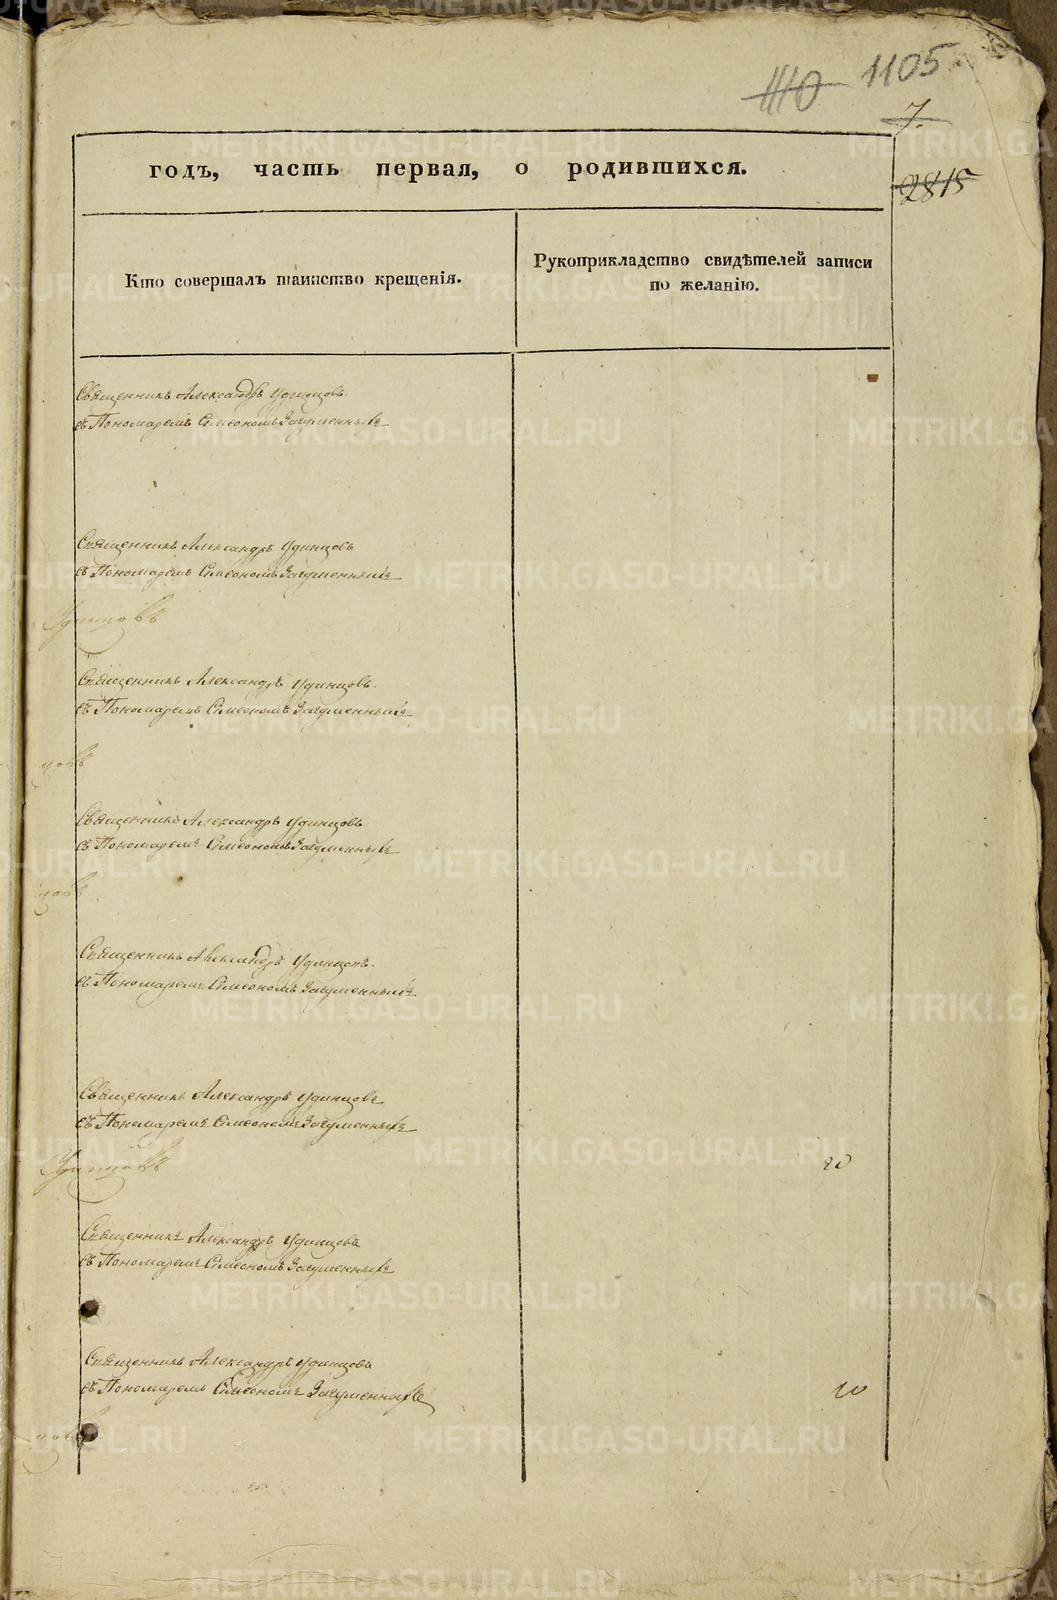 1110 1105
7.
2815
годъ, часть первая, о родившихся.
Кто совершалъ таинство крещенія.
Рукоприкладство свидѣтелей записи
по желанію.
Священникъ Александръ Удинцовъ
съ Пономаремъ Симеономъ Загуменныхъ
Священникъ Александръ Удинцовъ
съ Пономаремъ Симеономъ Загуменныхъ
Удинцовъ
Священникъ Александръ Удинцовъ.
съ Пономаремъ Симеономъ Загуменныхъ
цовъ
Священникъ Александръ Удинцовъ
съ Пономаремъ Симеономъ Загуменныхъ
цовъ
Священникъ Александръ Удинцовъ.
съ Пономаремъ Симеономъ Загуменныхъ
Священникъ Александръ Удинцовъ
съ Пономаремъ Симеономъ Загуменныхъ
Удинцовъ
Священникъ Александръ Удинцовъ
съ Пономаремъ Симеономъ Загуменныхъ
Священникъ Александръ Удинцовъ
съ Пономаремъ Симеономъ Загуменныхъ
цовъ
METRIKI.GASO-URAL.RU